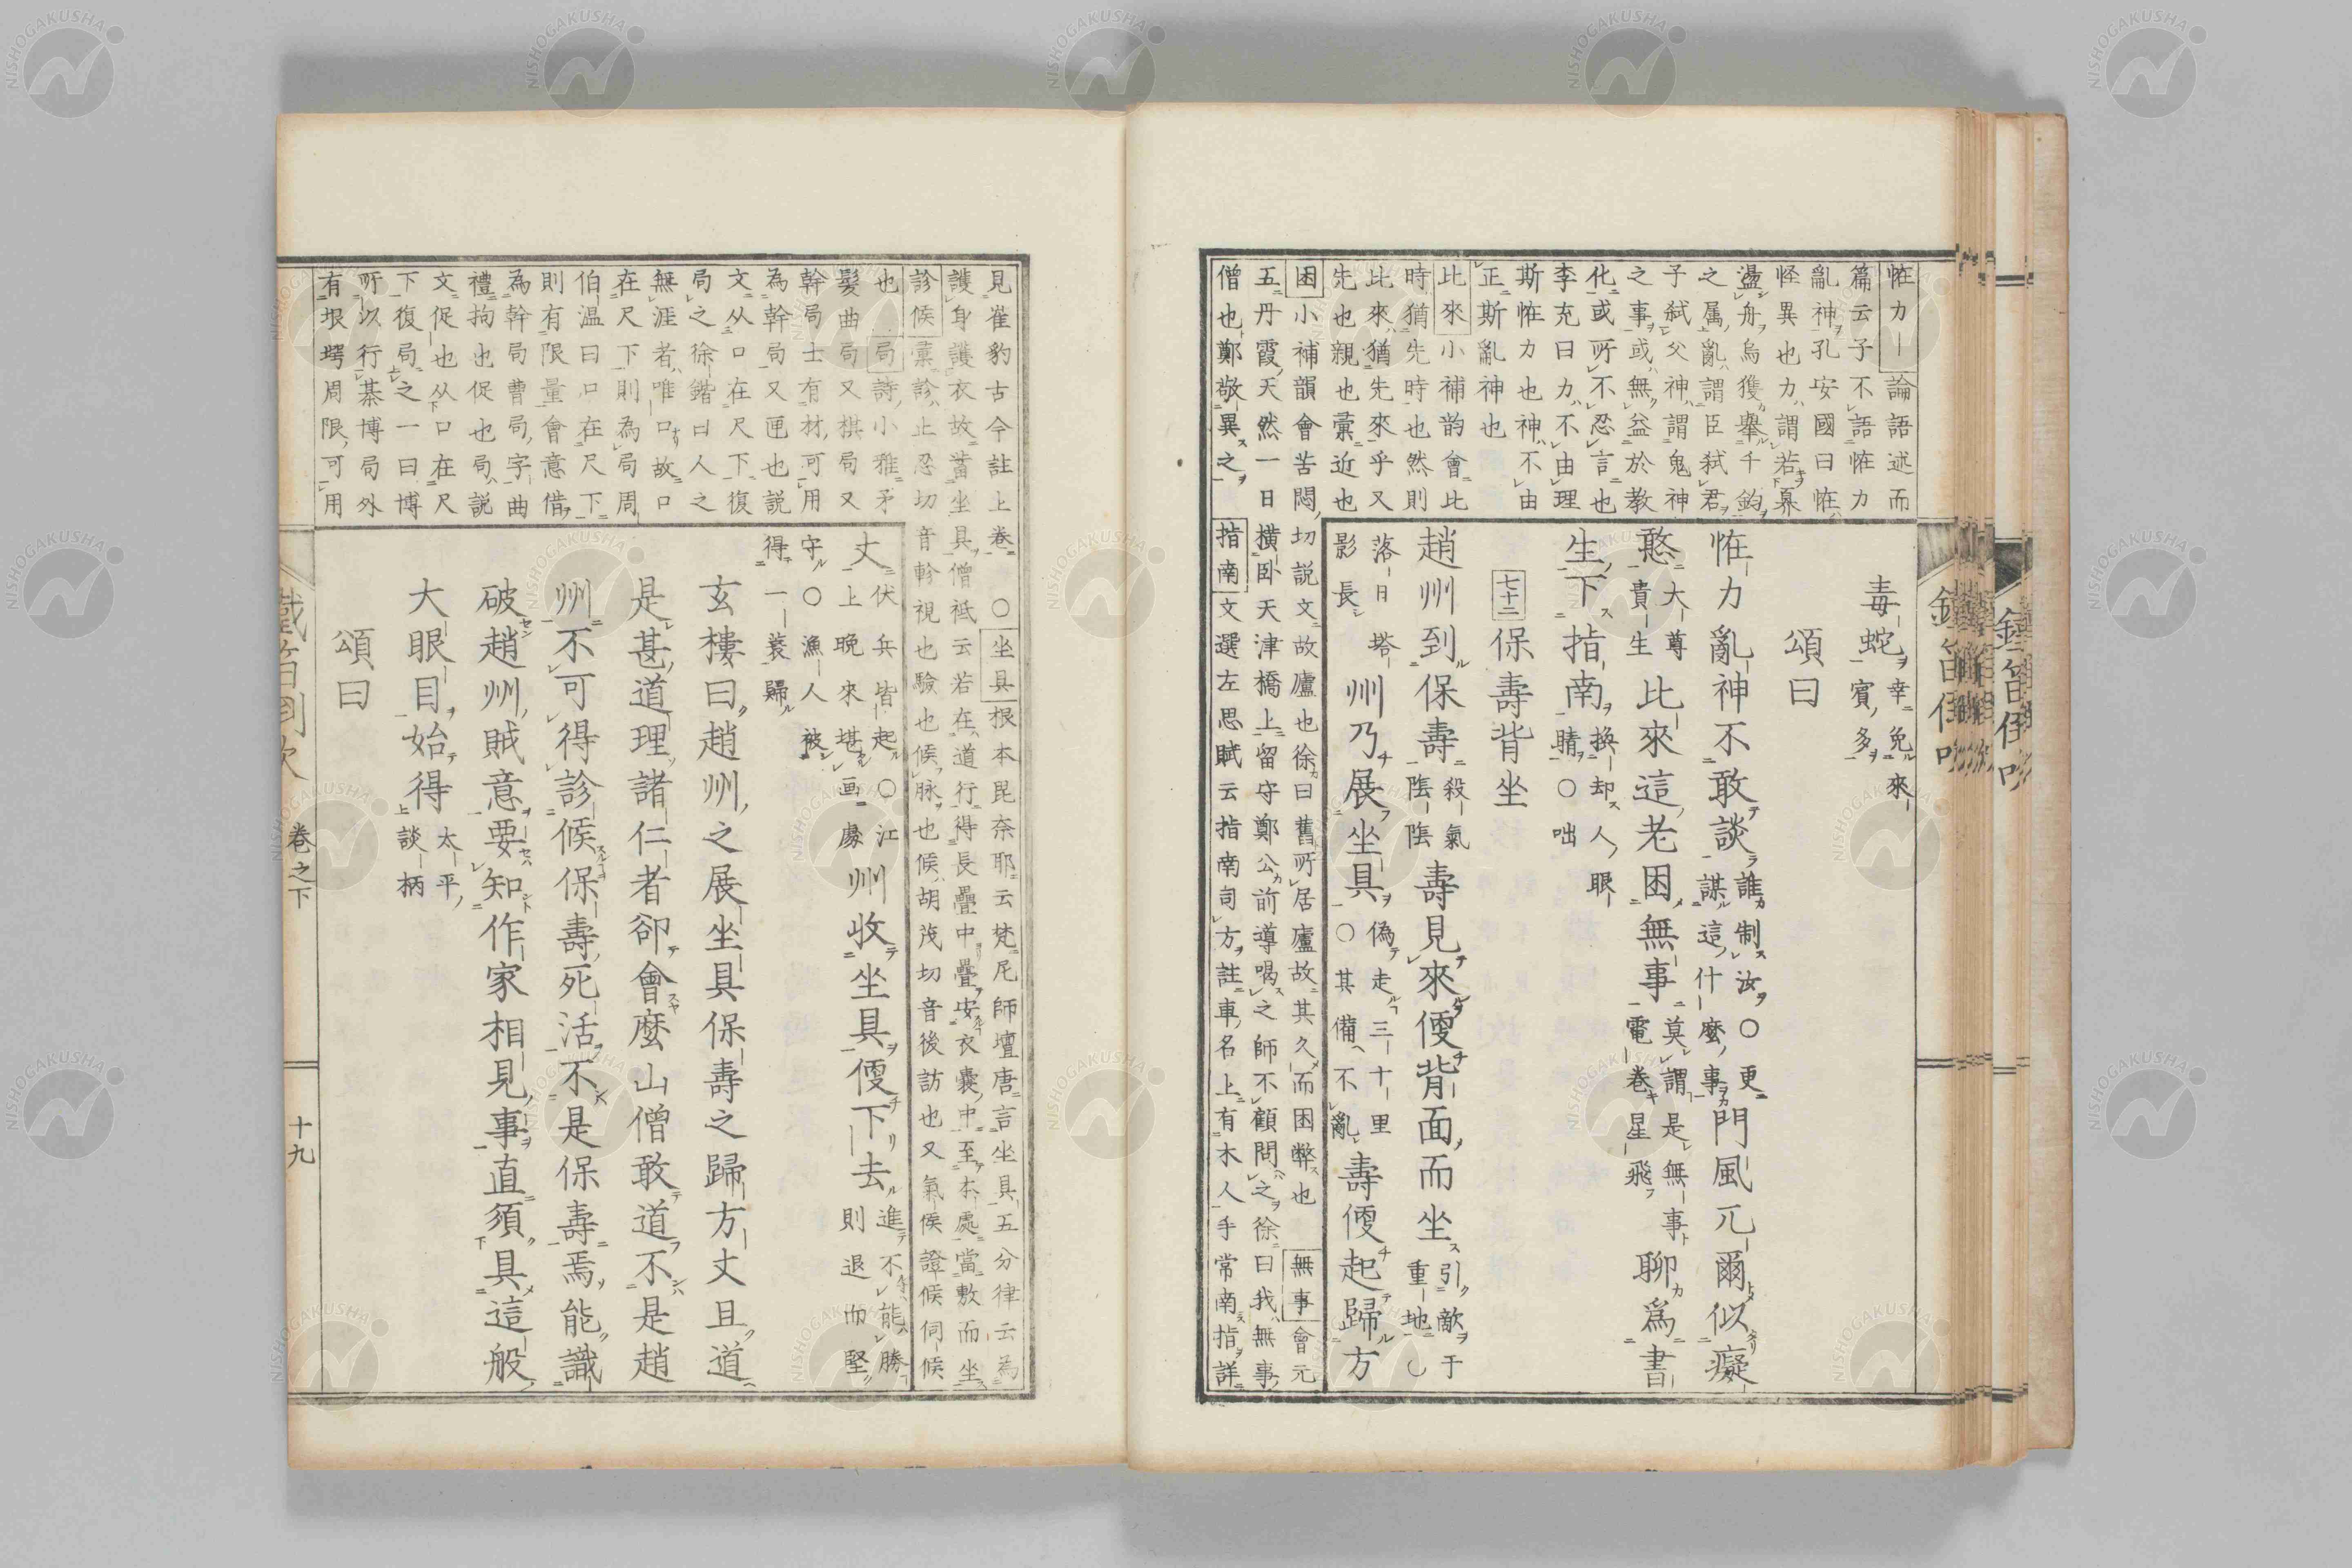 怪力—論語述而
篇云子不語怪力
亂神孔安國曰怪
怪異也力謂若奡
盪舟烏獲擧千鈞
之属亂謂臣弒君
子弒父神謂鬼神
之事或無益於教
化或所不忍言也
李充曰力不由理
斯怪力也神不由
正斯亂神也
比來小補韵會比
時猶先時也然則
比來猶先來乎又
先也親也彙近也
困小補韻會苦悶切説文故廬也徐曰舊所居廬故其久而困弊也 無事會元
五丹霞天然一日横臥天津橋上留守鄭公前導喝之師不顧問之徐曰我無事
僧也鄭敬異之 指南文選左思賦云指南司方註車名上有木人手常南指詳
毒蛇幸免來賓多
頌曰
怪力亂神不敢談誰制汝○更謀這什麼事門風兀爾似癡
憨大尊貴生比來這老困無事莫謂是無事電卷星飛聊爲書
生下指南換却人眼睛○咄
七十二 保壽背坐
趙州到保壽殺氣陰陰壽見來便背面而坐引敵于重地○
落日塔影長州乃展坐具偽走三十里○其備不亂壽便起歸方
鐵笛倒吹
見崔豹古今註上卷 ○坐具根本毘奈耶云梵尼師壇唐言坐具五分律云為
護身護衣故蓄坐具僧祗云若在道行得長疊中疊安衣囊中至本處當敷而坐
診候彙診止忍切音軫視也驗也候脉也候胡茂切音後訪也又氣候證候伺候
也 局詩小雅予
髮曲局又棋局又
幹局士有材可用
為幹局又匣也説
文从口在尺下復
局之徐鍇曰人之
無涯者唯口故口
在尺下則為局周
伯温曰口在尺下
則有限量會意借
為幹局曹局字曲
禮拘也促也局説
文促也从口在尺
下復局之一曰博
所以行棊博局外
有垠堮周限可用
丈伏兵皆起○江上晩來堪画處州收坐具便下去進不能勝則退而堅
守○漁人被得一蓑歸
玄樓曰趙州之展坐具保壽之歸方丈且道
是甚道理諸仁者卻會麼山僧敢道不是趙
州不可得診候保壽死活不是保壽焉能識
破趙州賊意要知作家相見事直須具這般
大眼目始得太平談柄
頌曰
鐵笛倒吹 卷之下 十九